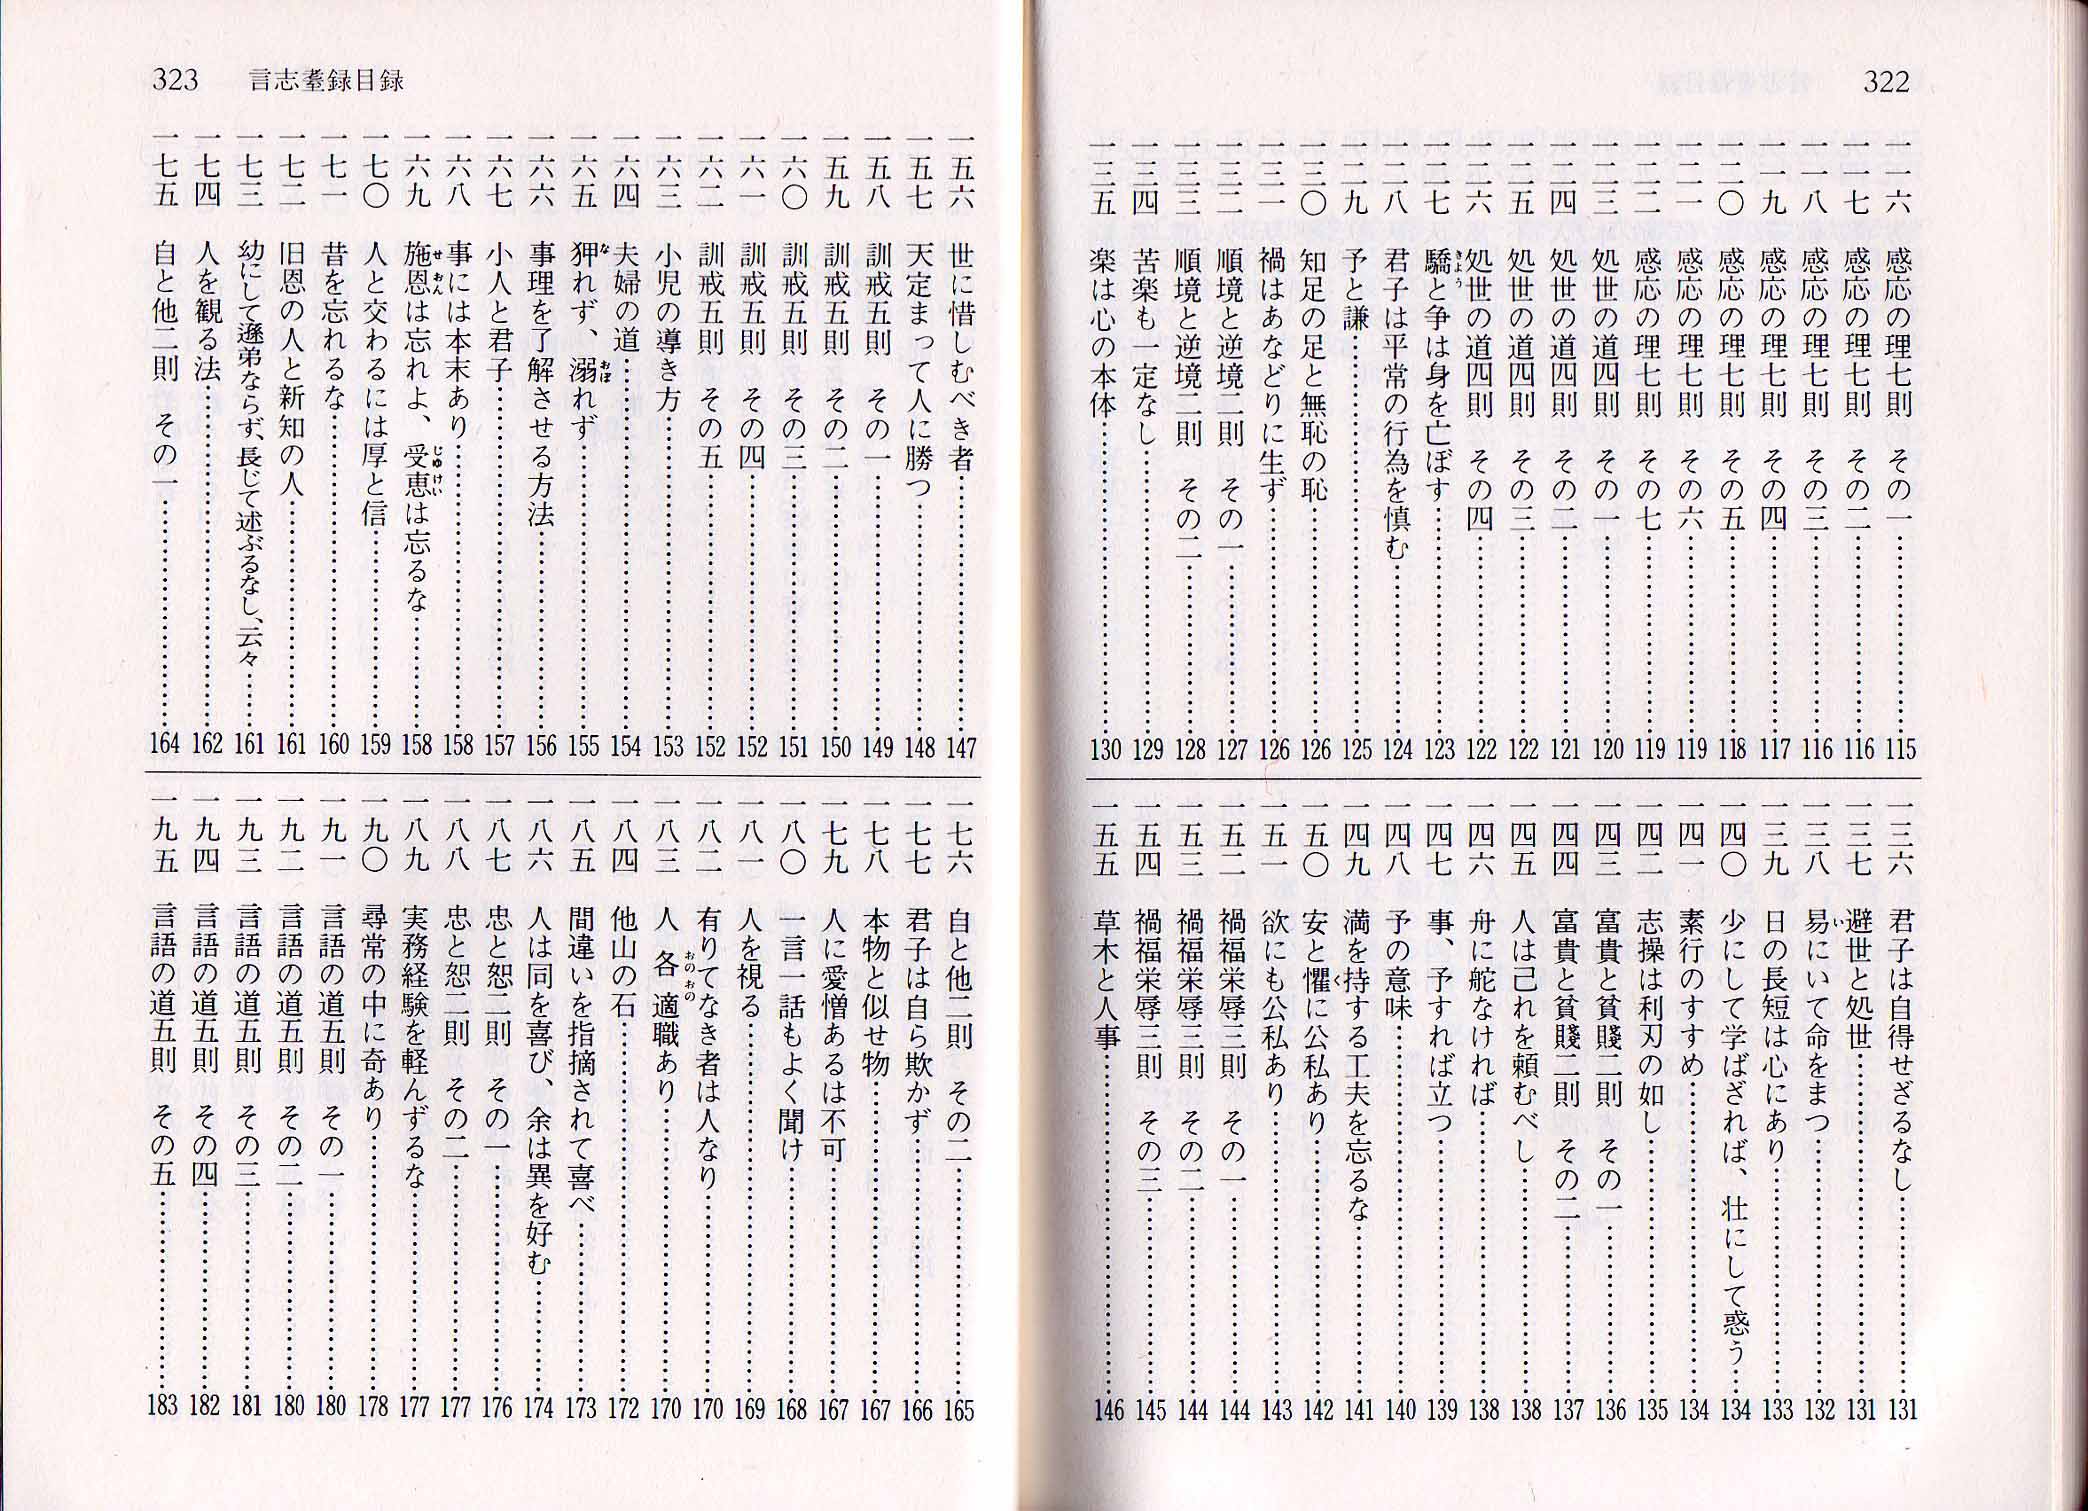 322
一一六 感応の理七則 その一……115
一一七 感応の理七則 その二……116
一一八 感応の理七則 その三……116
一一九 感応の理七則 その四……117
一二〇 感応の理七則 その五……118
一二一 感応の理七則 その六……119
一二二 感応の理七則 その七……119
一二三 処世の道四則 その一……120
一二四 処世の道四則 その二……121
一二五 処世の道四則 その三……122
一二六 処世の道四則 その四……122
一二七 驕と争は身を亡ぼす……123
一二八 君子は平常の行為を慎む……124
一二九 予と謙……125
一三〇 知足の足と無恥の恥……126
一三一 禍はあなどりに生ず……126
一三二 順境と逆境二則 その一……127
一三三 順境と逆境二則 その二……128
一三四 苦楽も一定なし……129
一三五 楽は心の本体……130
一三六 君子は自得せざるなし……131
一三七 避世と処世……131
一三八 易にいて命をまつ……132
一三九 日の長短は心にあり……133
一四〇 少にして学ばざれば、壮にして惑う……134
一四一 素行のすすめ……134
一四二 志操は利刃の如し……135
一四三 富貴と貧賤二則 その一……136
一四四 富貴と貧賤二則 その二……137
一四五 人は己れを頼むべし……138
一四六 舟に舵なければ……138
一四七 事、予すれば立つ……139
一四八 予の意味……140
一四九 満を持する工夫を忘るな……141
一五〇 安と懼に公私あり……142
一五一 欲にも公私あり……143
一五二 禍福栄辱三則 その一……144
一五三 禍福栄辱三則 その二……144
一五四 禍福栄辱三則 その三……145
一五五 草木と人事……146
323 言志耋録目録
一五六 世に惜しむべき者……147
一五七 天定まって人に勝つ……148
一五八 訓戒五則 その一……149
一五九 訓戒五則 その二……150
一六〇 訓戒五則 その三……151
一六一 訓戒五則 その四……152
一六二 訓戒五則 その五……152
一六三 小児の導き方……153
一六四 夫婦の道……154
一六五 狎れず、溺れず……155
一六六 事理を了解させる方法……156
一六七 小人と君子……157
一六八 事には本末あり……158
一六九 施恩は忘れよ、受恵は忘るな……158
一七〇 人と交わるには厚と信……159
一七一 昔を忘れるな……160
一七二 旧恩の人と新知の人……161
一七三 幼にして遜弟ならず、長じて述ぶるなし、云々……161
一七四 人を観る法……162
一七五 自と他二則 その一……164
一七六 自と他二則 その二……165
一七七 君子は自ら欺かず……166
一七八 本物と似せ物……167
一七九 人に愛憎あるは不可……167
一八〇 一言一話もよく聞け……168
一八一 人を視る……169
一八二 有りてなき者は人なり……170
一八三 人 各 適職あり……170
一八四 他山の石……172
一八五 間違いを指摘されて喜べ……173
一八六 人は同を喜び、余は異を好む……174
一八七 忠と恕二則 その一……176
一八八 忠と恕二則 その二……177
一八九 実務経験を軽んずるな……177
一九〇 尋常の中に奇あり……178
一九一 言語の道五則 その一……180
一九二 言語の道五則 その二……180
一九三 言語の道五則 その三……181
一九四 言語の道五則 その四……182
一九五 言語の道五則 その五……183